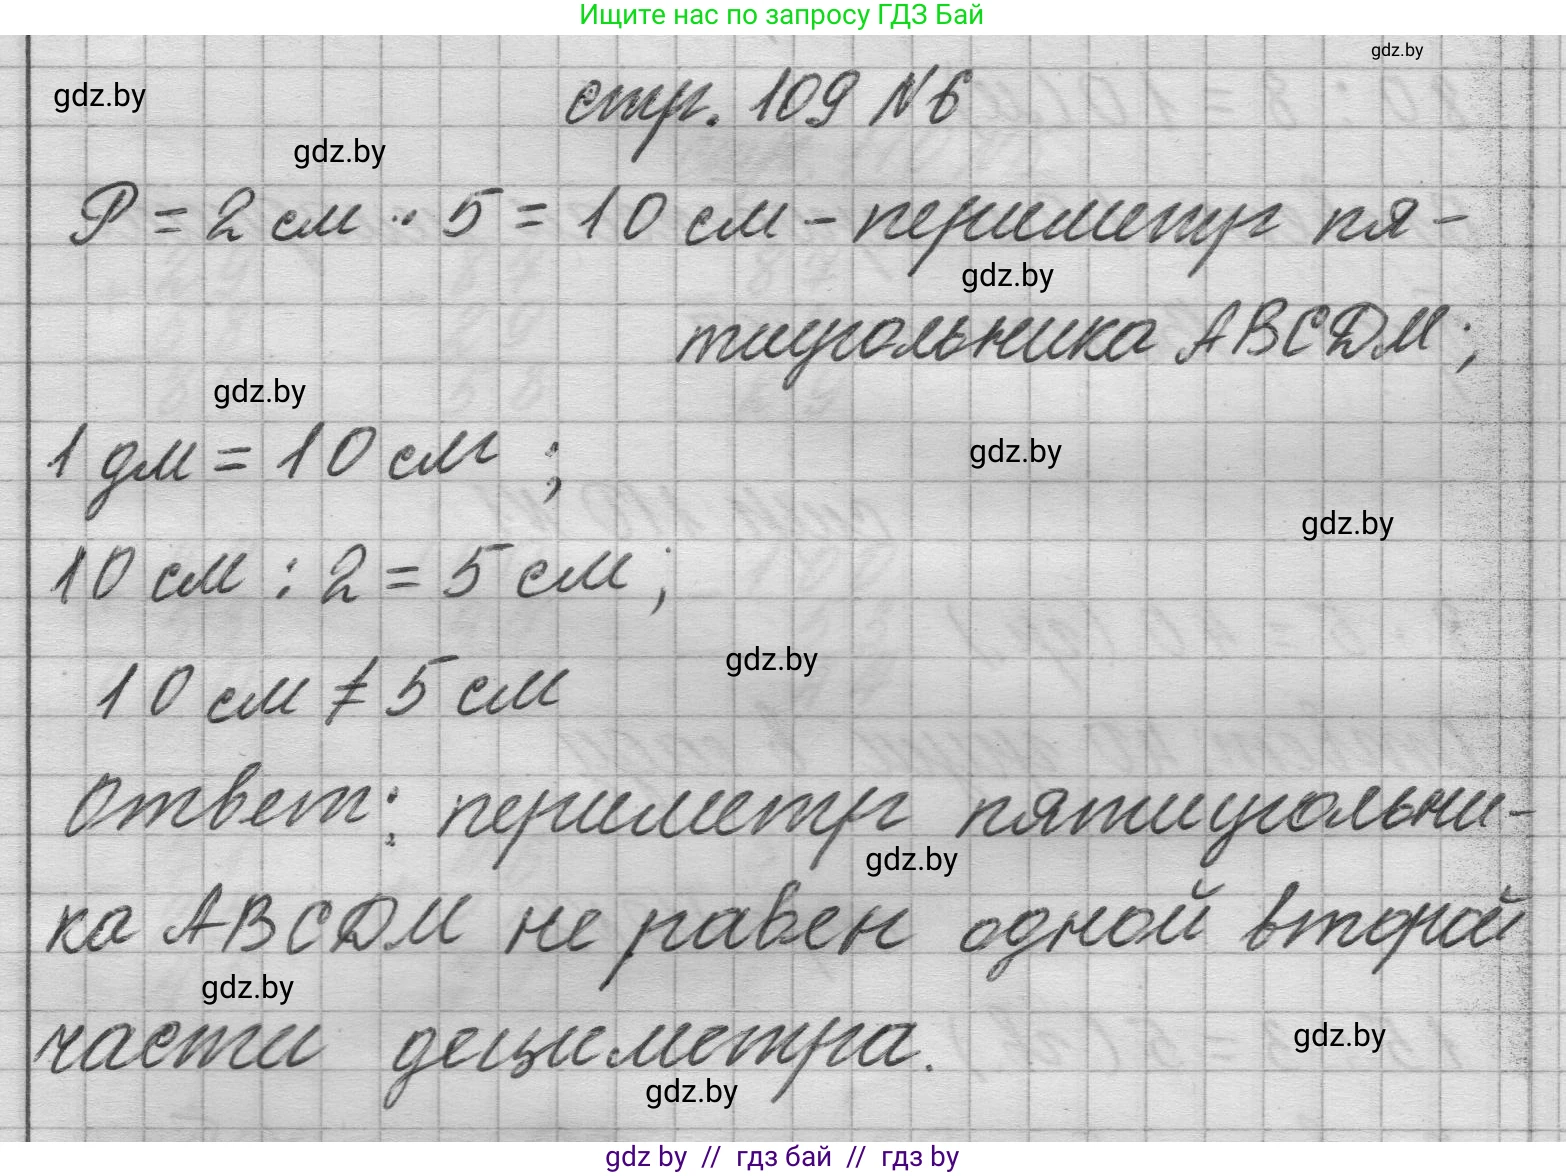 Ищите нас по запросу ГДЗ Бай
gdz.by
gdz.by
стр. 109 №6
gdz.by
P = 2 см · 5 = 10 см - периметр пя-
gdz.by
тиугольника ABCDM;
gdz.by
1 дм = 10 см ;
gdz.by
gdz.by
10 см : 2 = 5 см ;
10 см ≠ 5 см
gdz.by
Ответ: периметр пятиугольни-
gdz.by
ка ABCDM не равен одной второй
gdz.by
части дециметра.
gdz.by
gdz.by
gdz by // гдз бай // гдз by